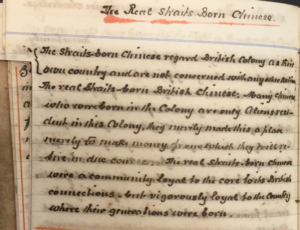 The Real Straits Born Chinese.
The Straits-born Chinese regard British Colony as their
own country and are not concerned with any other
The real Straits-born British Chinese. Many Chinese
who were born in the Colony are only
in this Colony, they merely made this a place
merely to make money
in due course. The real Straits-born Chinese
were a community loyal to the core to its British
connections, but vigorously loyal to the Country
where their generations were born.